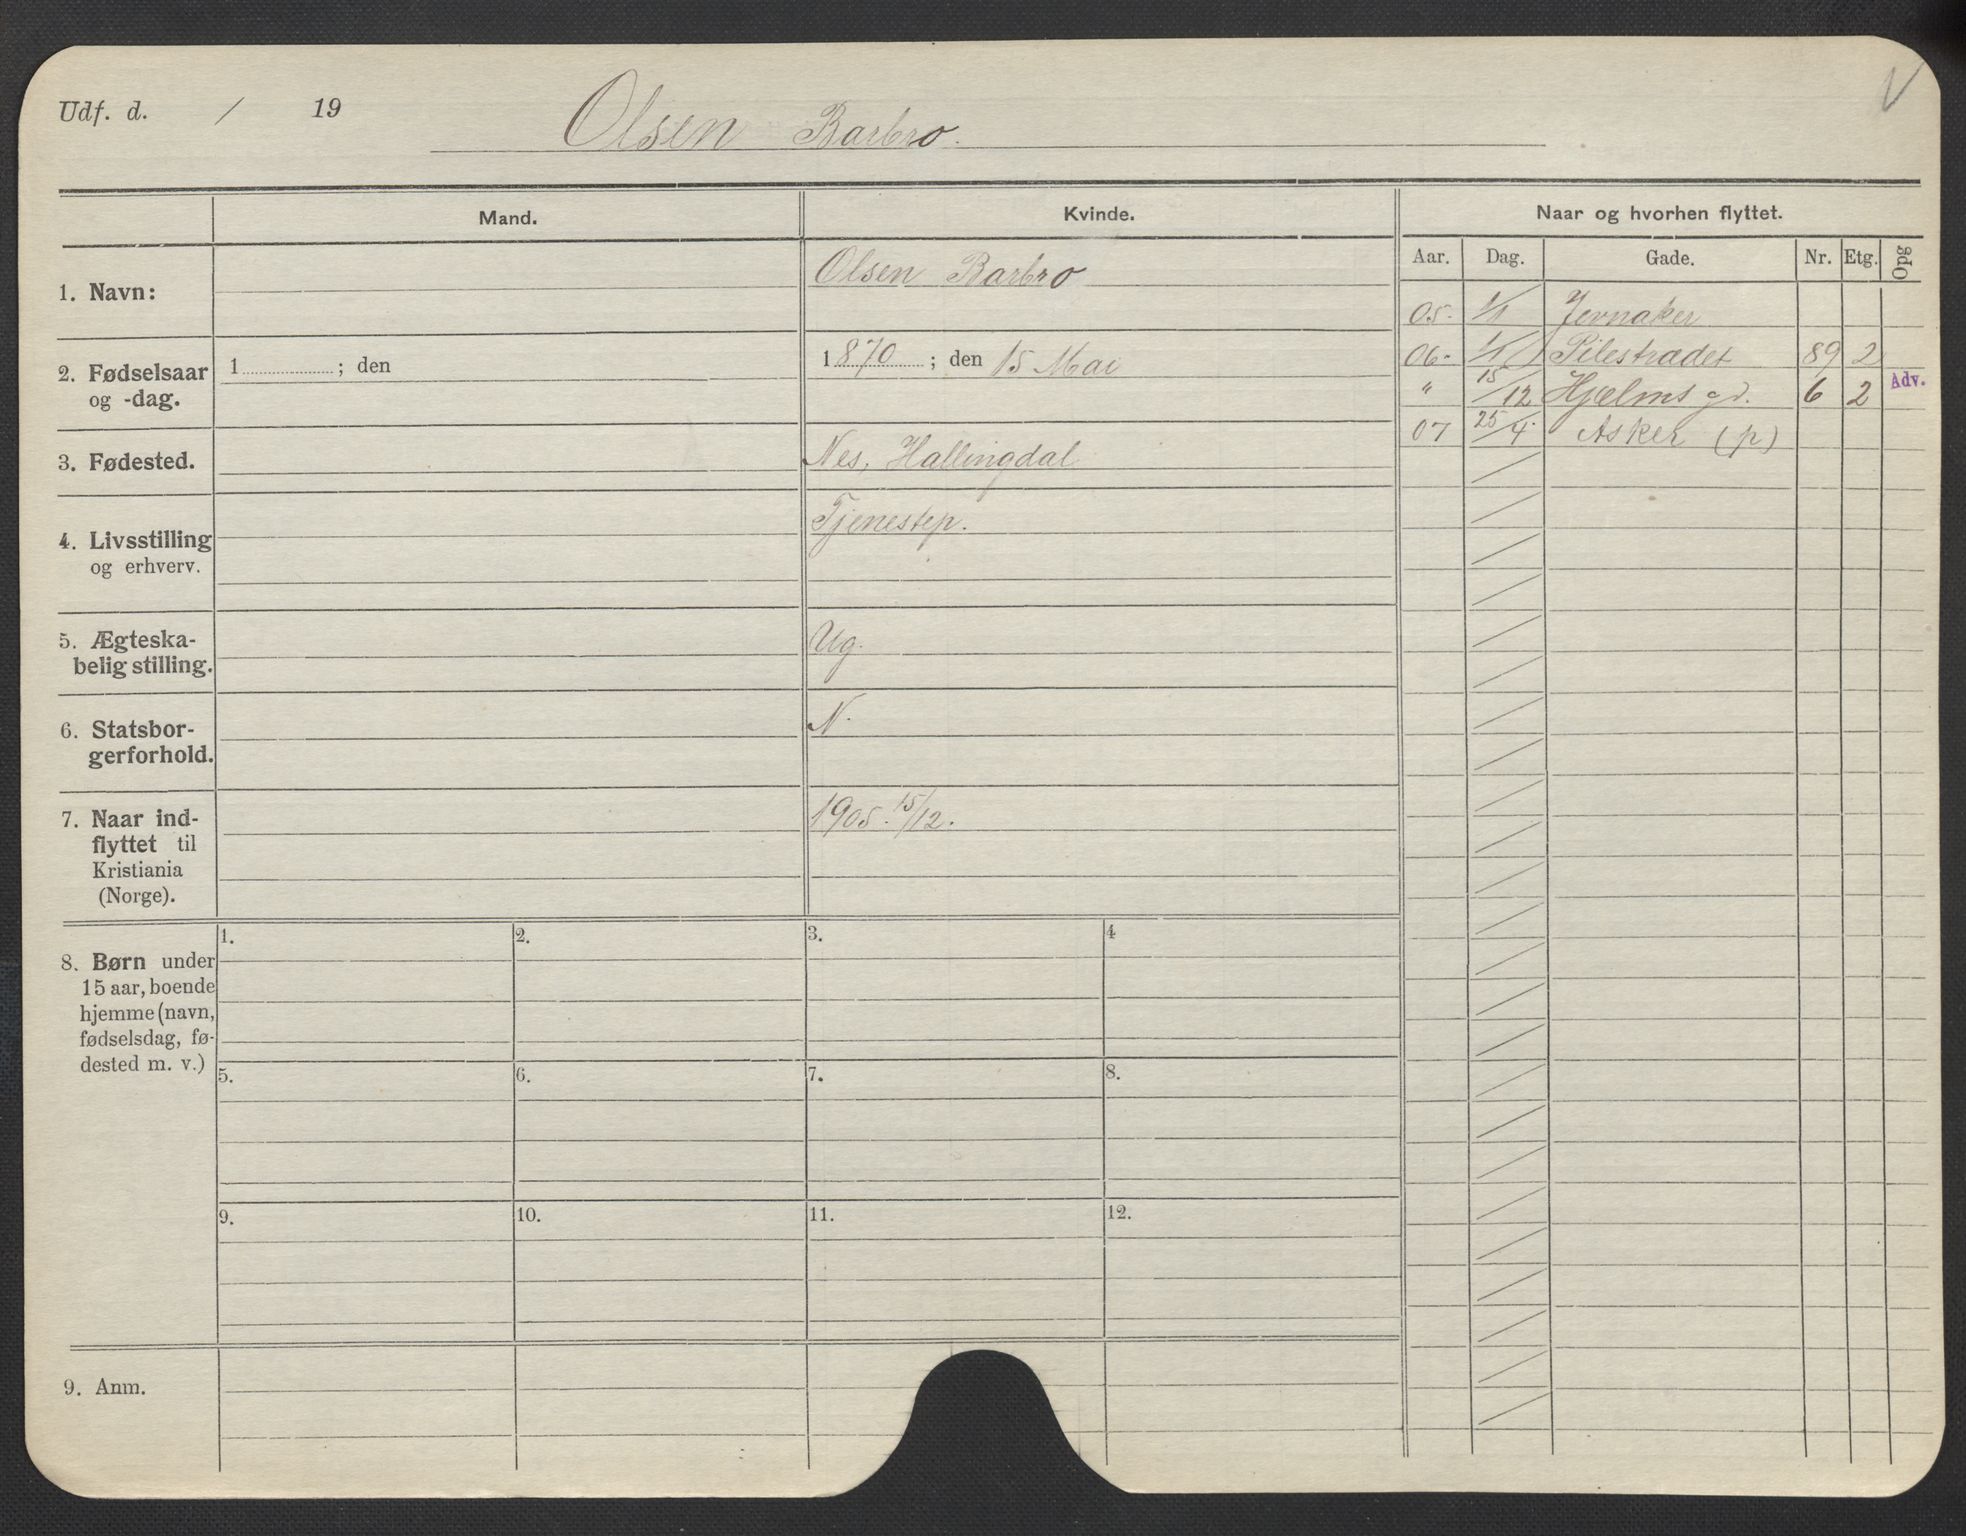 Udf. d. / 19 Olsen Barbro. V
Mand. Kvinde. Naar og hvorhen flyttet.
Aar. Dag. Gade. Nr. Etg. Opg
1. Navn: Olsen Barbro
2. Fødselsaar
og -dag.
1 ; den
1870 ; den 15 Mai
3. Fødested. Nes, Hallingdal
4. Livsstilling
og erhverv.
Tjenestep.
5. Ægteska-
belig stilling.
Ug.
6. Statsbor-
gerforhold.
N.
7. Naar ind-
flyttet til
Kristiania
(Norge).
1905. 15/12.
05. 1/1 Jevnaker
06. 1/1 Pilestrædet 89 2
" 15/12 Hjelms gd. 6 2 Adv.
07 25/4 Asker (p)
8. Børn under
15 aar, boende
hjemme (navn,
fødselsdag, fø-
dested m. v.)
1. 2. 3. 4
5. 6. 7. 8.
9. 10. 11. 12.
9. Anm.